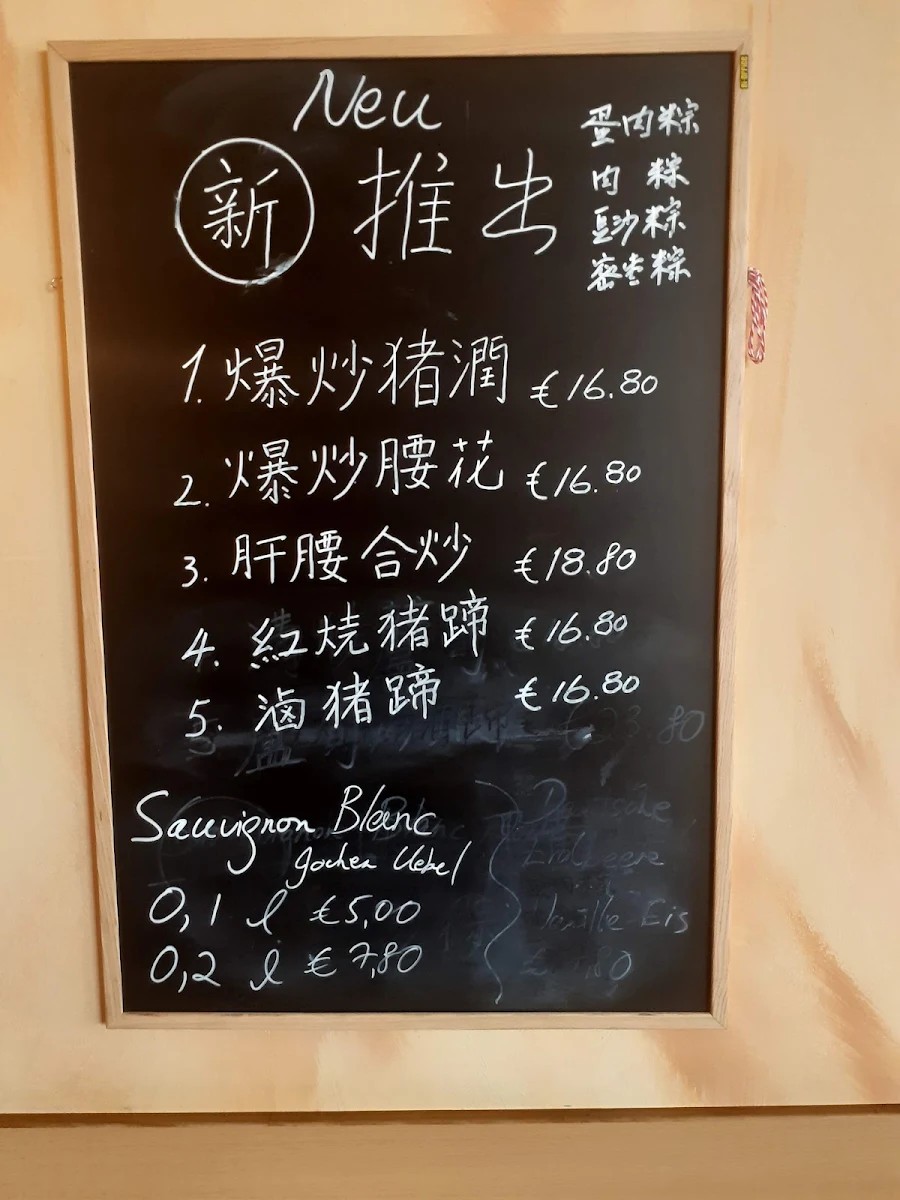 Neu
新 推出
蛋肉粽
肉 粽
豆沙粽
密枣粽
1. 爆炒猪潤 €16.80
2. 爆炒腰花 €16.80
3. 肝腰合炒 €18.80
4. 紅烧猪蹄 €16.80
5. 滷猪蹄 €16.80
Sauvignon Blanc
Jochen Uebel
0,1 l €5,00
0,2 l €7,80
Deutsche
Erdbeere
Vanille-Eis